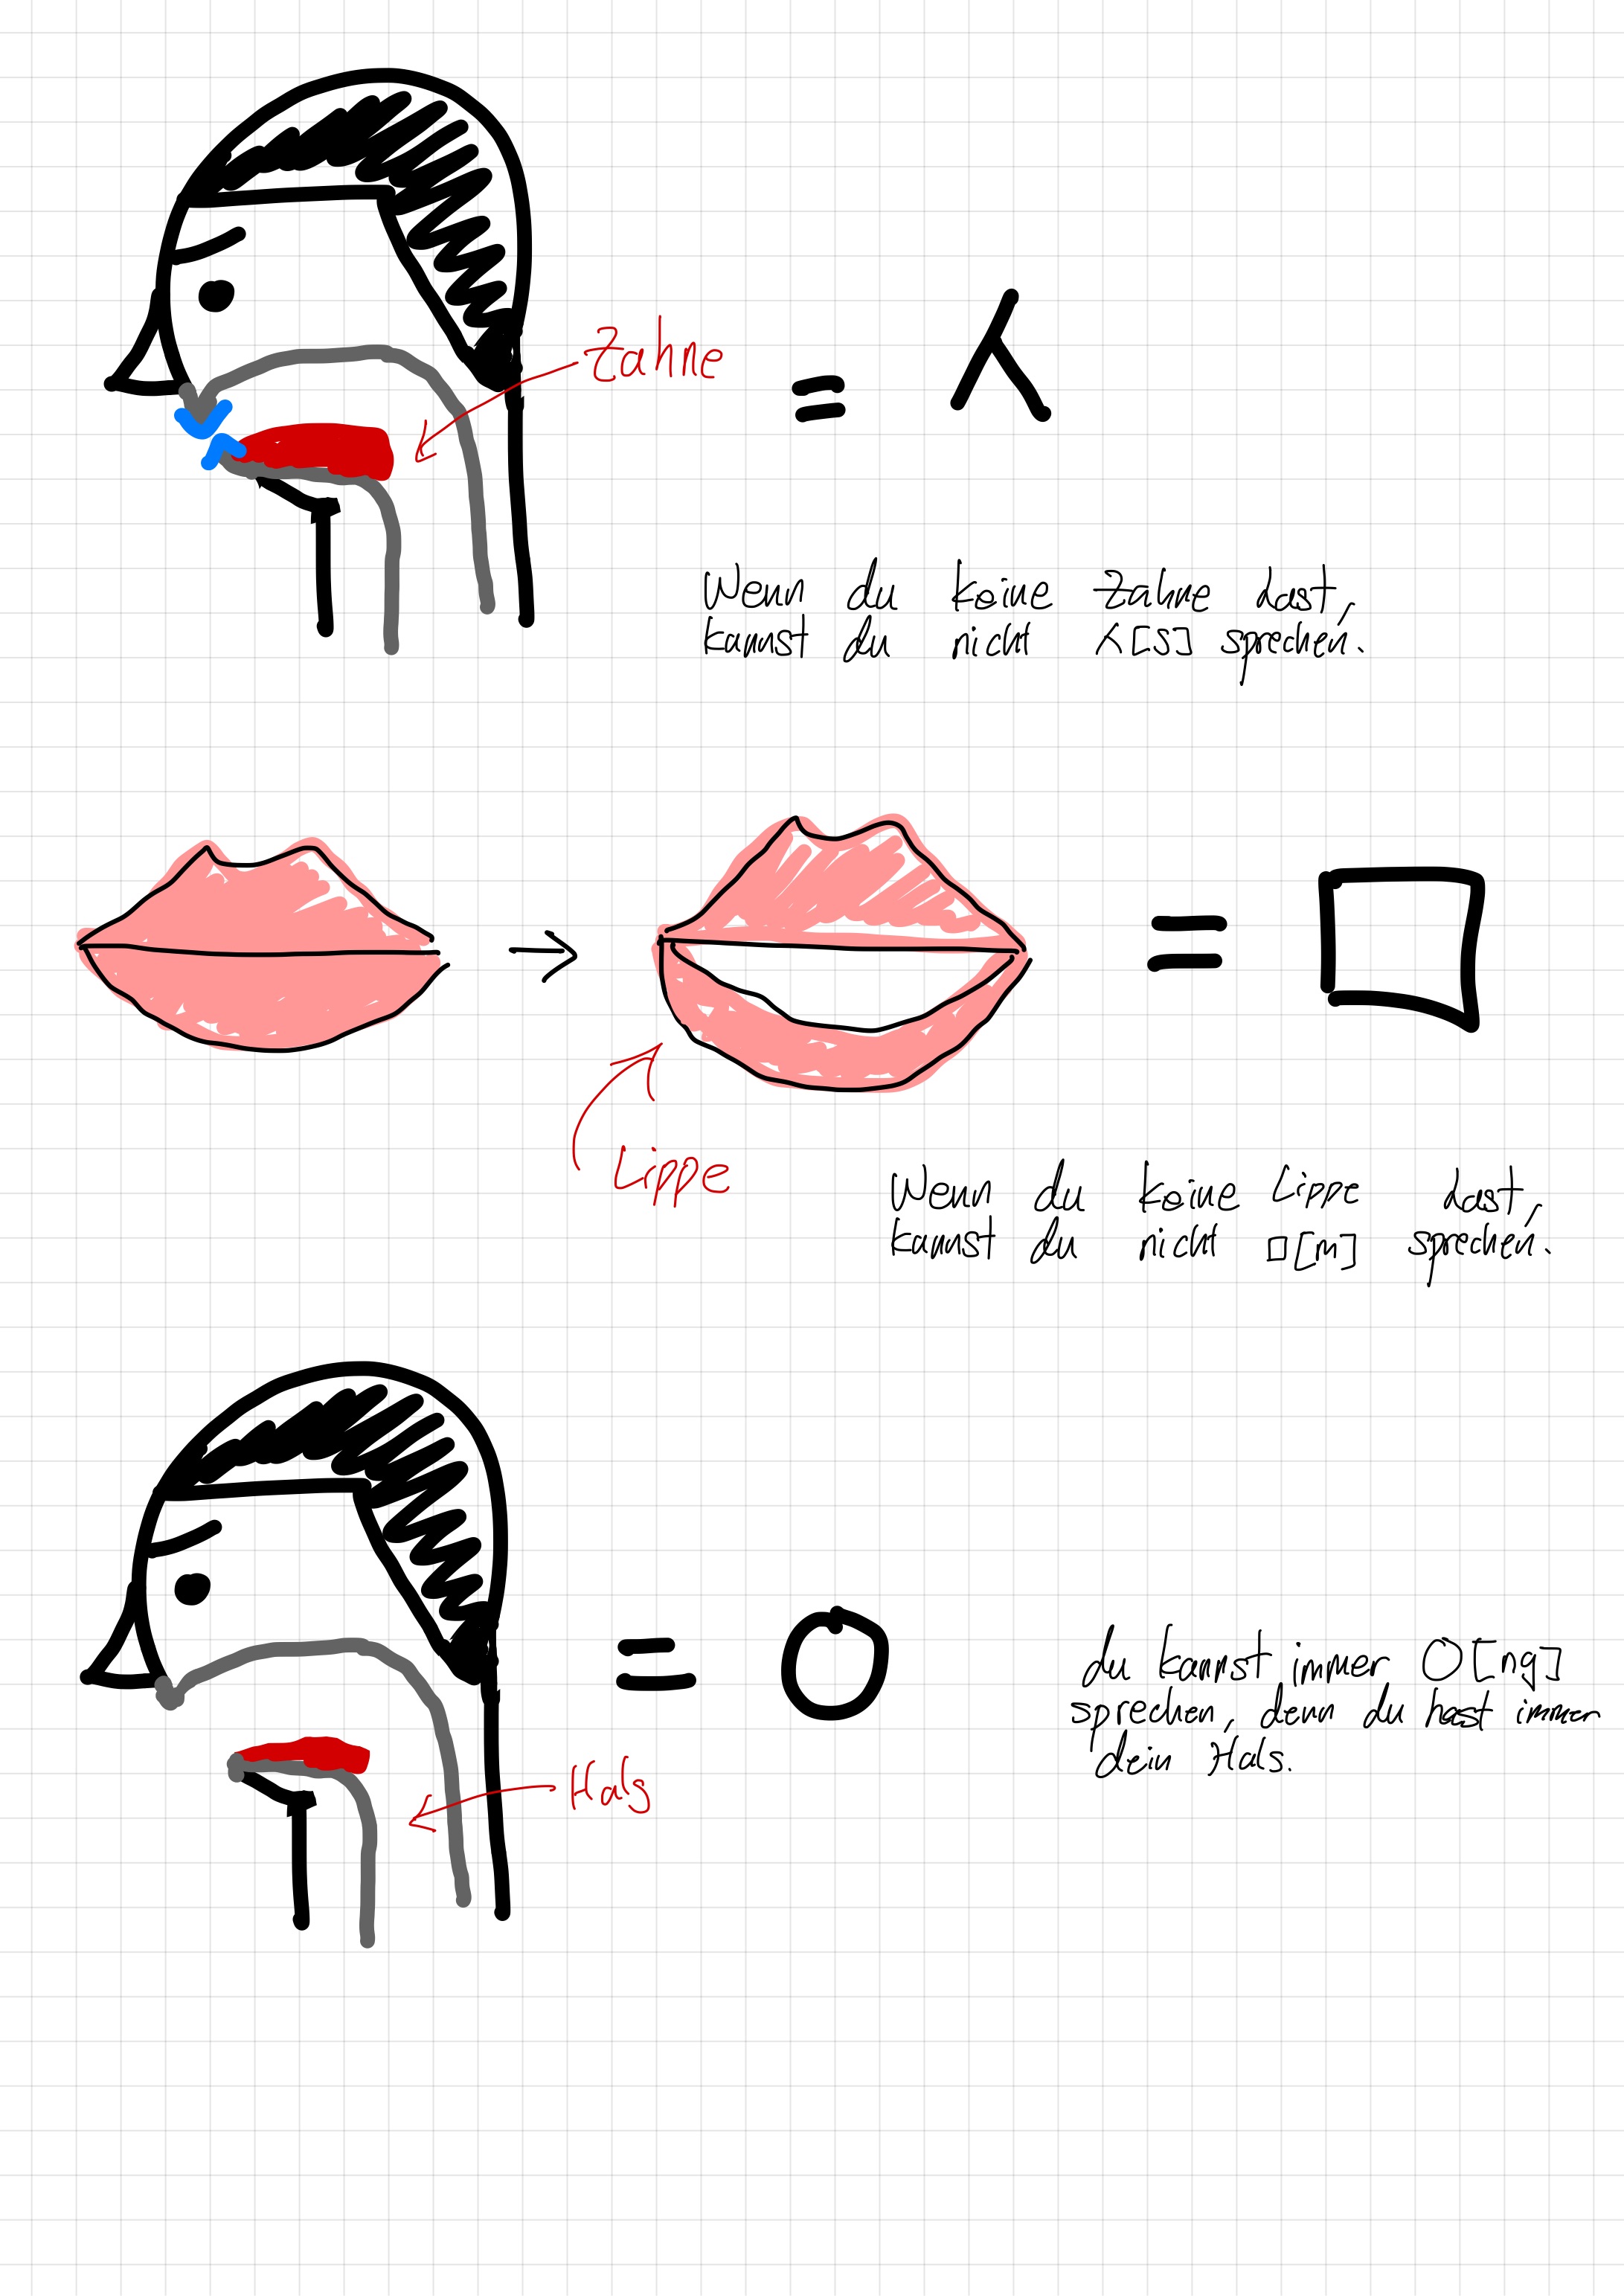 Zahne
= ㅅ
Wenn du keine Zahne hast,
kannst du nicht ㅅ[s] sprechen.
→ = ㅁ
Lippe
Wenn du keine Lippe hast,
kannst du nicht ㅁ[m] sprechen.
= ㅇ
du kannst immer ㅇ[ng]
sprechen, denn du hast immer
dein Hals.
Hals